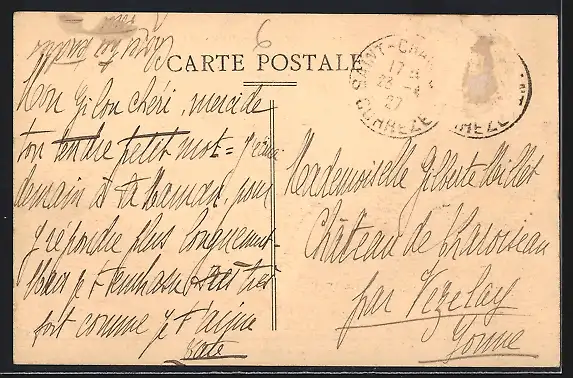 6
CARTE POSTALE
SAINT-CHA
17
23 -4
27
CORREZE
REZE
Mon Gilou chéri, merci de
ton tendre petit mot = J'écris
demain à ta Maman, pour
y répondre plus longuement.
Mais je t'embrasse très
fort comme je t'aime
Kate
Mademoiselle Gilberte Millet
Château de Pharoiseau
par Vezelay
Yonne